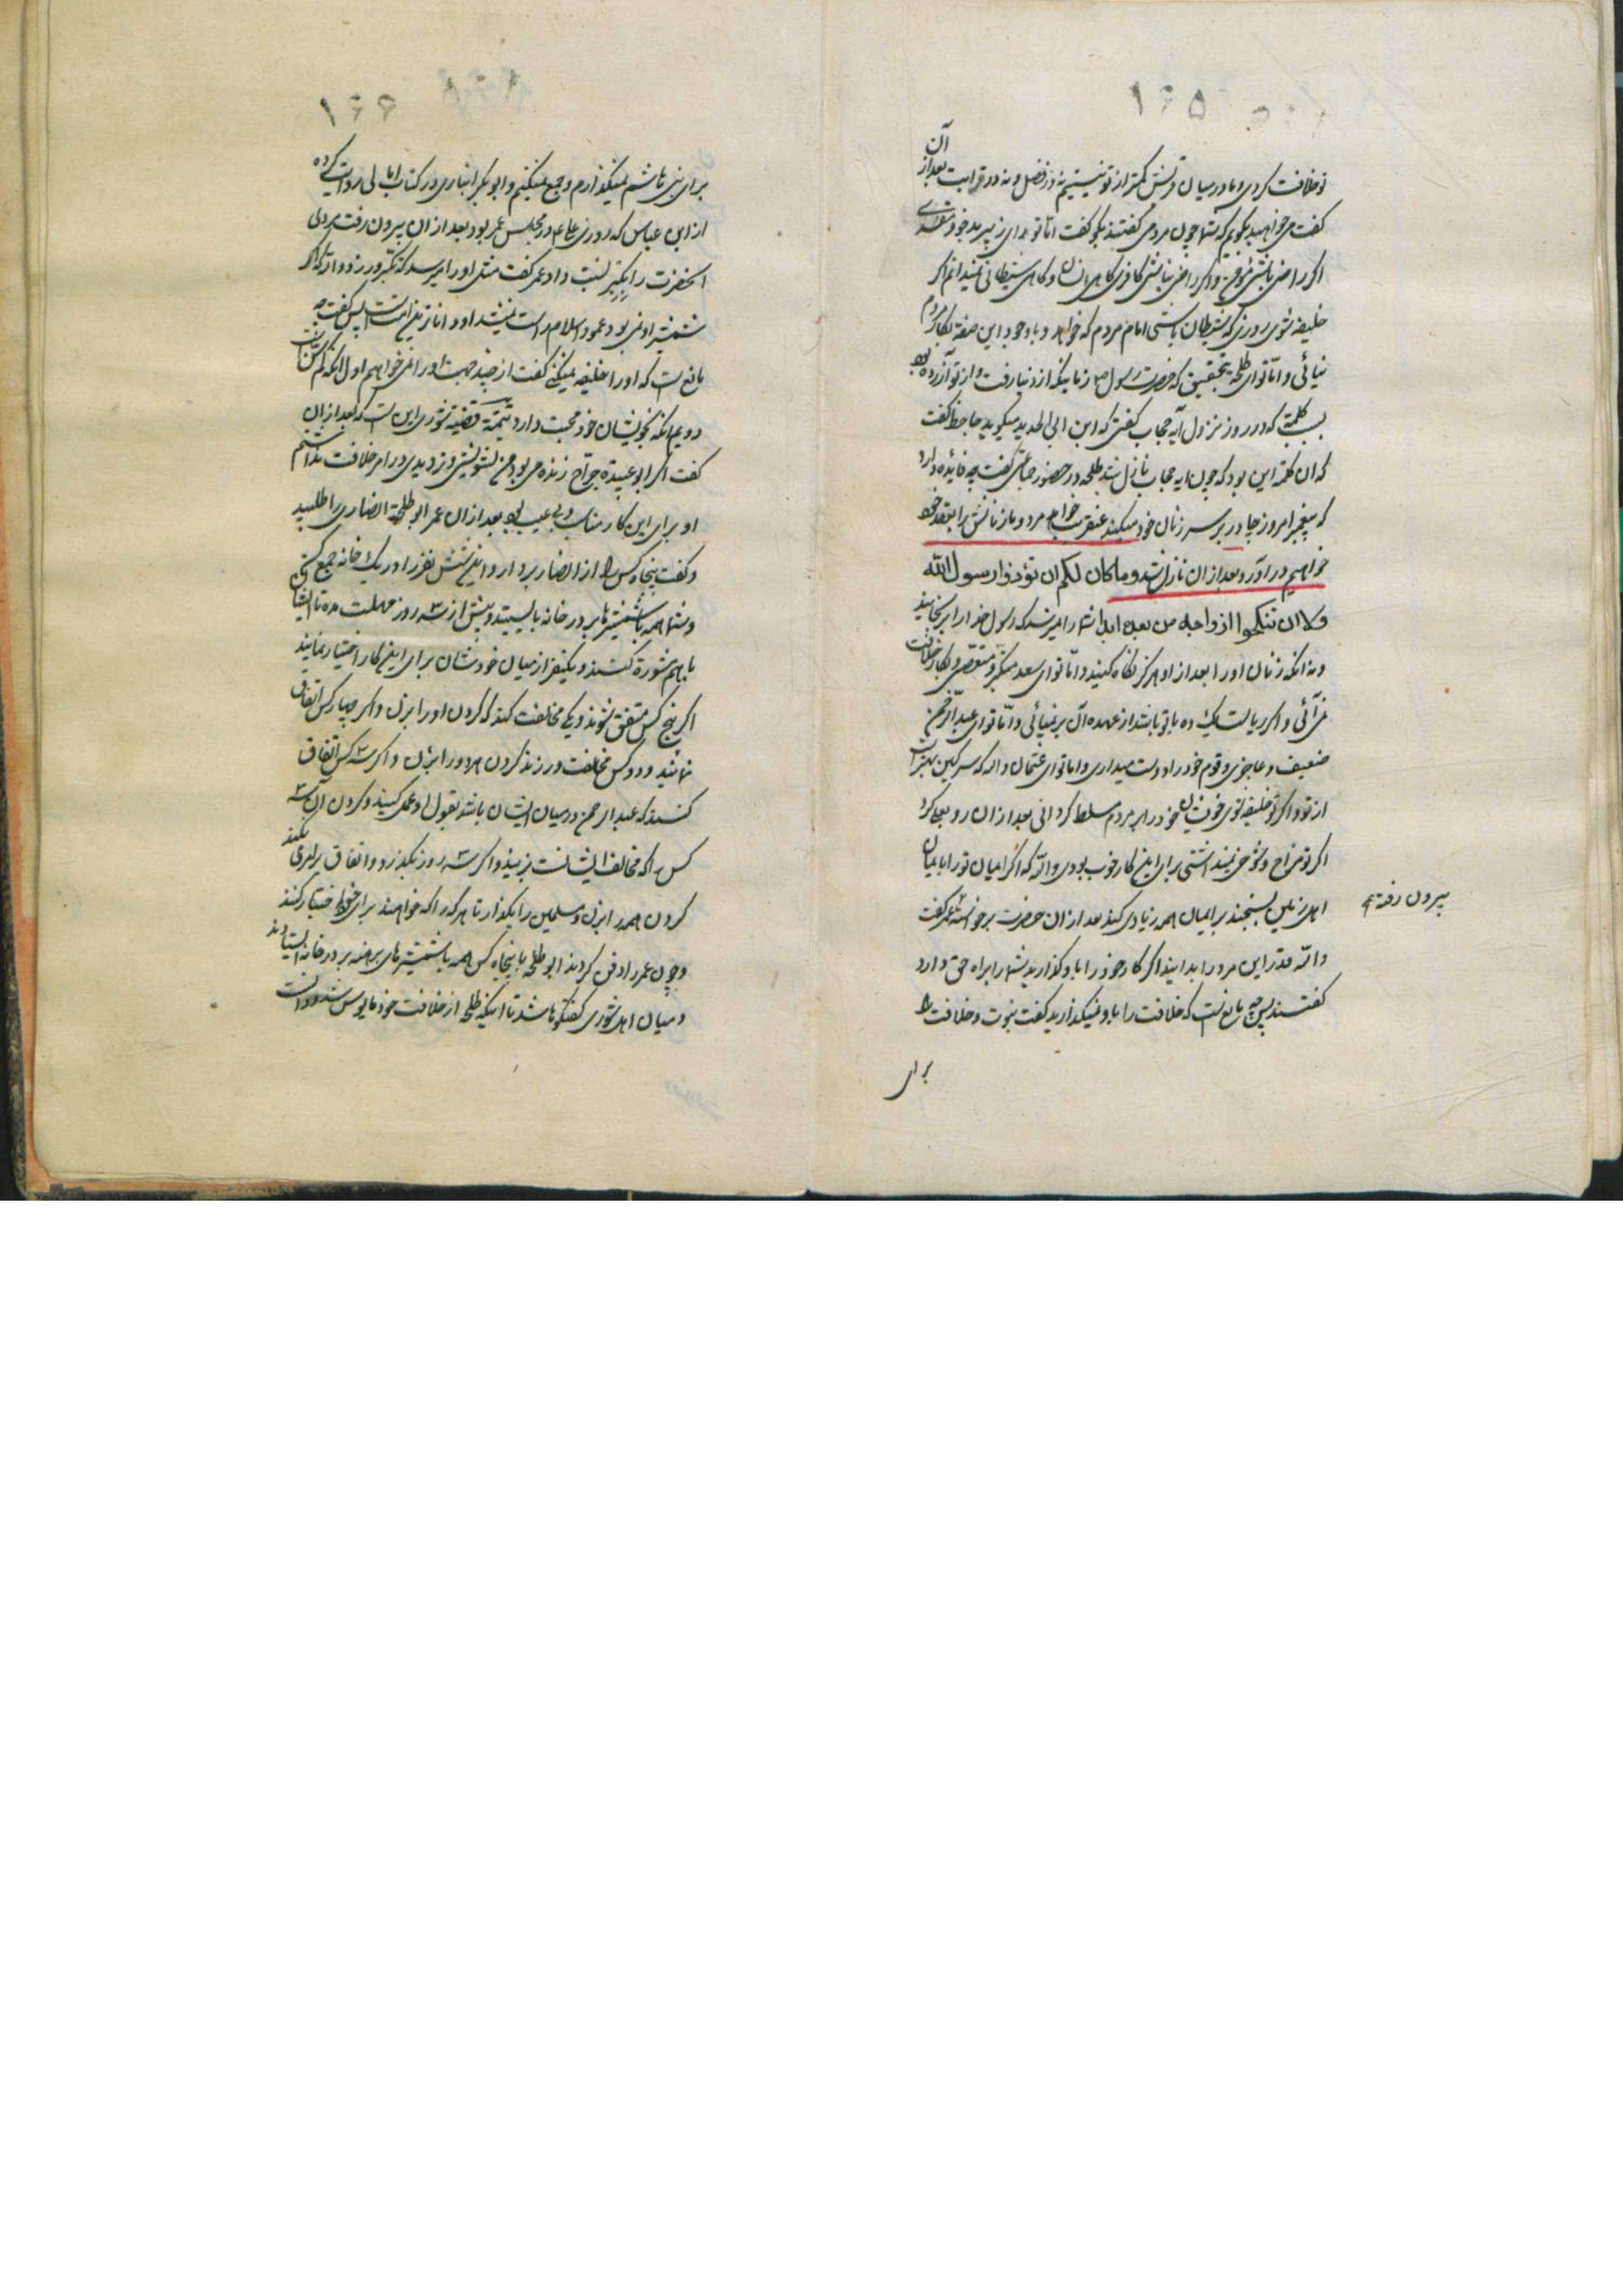 ۱۶۵
آن
تو خلافت کردی و ما در میان قریش کمتر از تو نیستیم نه در فضل و نه در قرابت بعد از
گفت می خواهید بگویم که شما چون مردمی گفتند بگو گفت اما تو ای زبیر بدخو و
اگر راضی باشی مؤمنی و اگر راضی نباشی کافری گاهی انسان و گاهی شیطانی نمیدانم اگر
خلیفه شوی روزی که شیطان باشی امام مردم که خواهد و با وجود این صفة بکار مردم
نیائی و اما تو ای طلحه بتحقیق که حضرت رسول ص زمانیکه از دنیا رفت و از تو آزرده بود
بسبب کلمة که در روز نزول آیه حجاب گفتی که ابن ابی الحدید میگوید جاحظ گفت
که آن کلمه این بود که چون آیه حجاب نازل شد طلحه در حضور جماعتی گفت چه فایده دارد
که پیغمبر امروز چادر بر سر زنان خود میکند عنقریب خواهد مرد و ما زنانش را بعقد خود
خواهیم در آورد و بعد از آن نازل شد و ما کان لکم ان تؤذوا رسول الله
ولا ان تنکحوا ازواجه من بعده ابدا شما را نمیرسد که رسول خدا را برنجانید
و نه آنکه زنان او را بعد از او هرگز نکاه کنید و اما تو ای سعد متکبر و متعصبی و بکار خلافت
نمی آئی و اگر ریاست یک ده با تو باشد از عهده آن بر نیائی و اما تو ای عبد الرحمن
ضعیف و عاجزی و قوم خود را دوست میداری و اما تو ای عثمان والله که سرکین بهتر است
از تو و اگر تو خلیفه شوی خویشان خود را بر مردم مسلط گردانی بعد از آن رو بعلی کرد
اگر تو مزاح و شوخی نمیداشتی برای این کار خوب بودی والله که اگر ایمان تو را با ایمان
اهل زمین بسنجند بر ایمان همه زیادتی کند بعد از آن حضرت برخواسته عمر گفت
والله قدر این مرد را بدانید اگر کار خود را باو گذارید شما را براه حق دارد
گفتند پس چه مانع است که خلافت را باو نمیگذارید گفت نبوت و خلافت را
برای
بیرون رفته
۱۶۶
برای بنی هاشم نمیگذارم و جمع نمیکنیم و ابو بکر انباری در کتاب امالی روایت کرده
از ابن عباس که روزی علی ع در مجلس عمر بود بعد از آن بیرون رفت مردی
آنحضرت را بتکبر نسبت داد عمر گفت مثل او را میرسد که تکبر ورزد والله که اگر
شمشیر او نمی بود عمود اسلام راست نمیشد او داناترین امت است پس گفت چه
مانع است که او را خلیفه نمیکنی گفت از چند جهت او را نمی خواهیم اول آنکه کم سن است
دویم آنکه بخویشان خود محبت دارد تتمه قضیه شوری این است که بعد از آن
گفت اگر ابو عبیده جراح زنده می بود من تشویش و تردیدی در امر خلافت نداشتم
او برای این کار مناسب و بی عیب بود بعد از آن عمر ابو طلحة انصاری را طلبید
و گفت پنجاه کس را از انصار بردار و این شش نفر را در یک خانه جمع کن
و شما همه با شمشیرها بر در خانه بایستید و بیش از سه روز مهلت مده تا ایشان
با هم مشورة کنند و یکنفر از میان خودشان برای این کار اختیار نمایند
اگر پنج کس متفق شوند و یکی مخالفت کند گردن او را بزن و اگر چهار کس اتفاق
نمایند و دو کس مخالفت ورزند گردن هر دو را بزن و اگر سه کس اتفاق
کنند که عبد الرحمن در میان ایشان باشد بقول او عمل کنید و گردن آن سه
کس را که مخالف ایشانست بزنید و اگر سه روز بگذرد و اتفاق بر امری نکنند
گردن همه را بزن و مسلمین را بگذار تا هر که را که خواهند برای خود اختیار کنند
و چون عمر را دفن کردند ابو طلحه با پنجاه کس همه با شمشیرهای برهنه بر در خانه ایستادند
و میان اهل شوری گفتگوها شد تا اینکه طلحه از خلافت خود مایوس شد و دانست